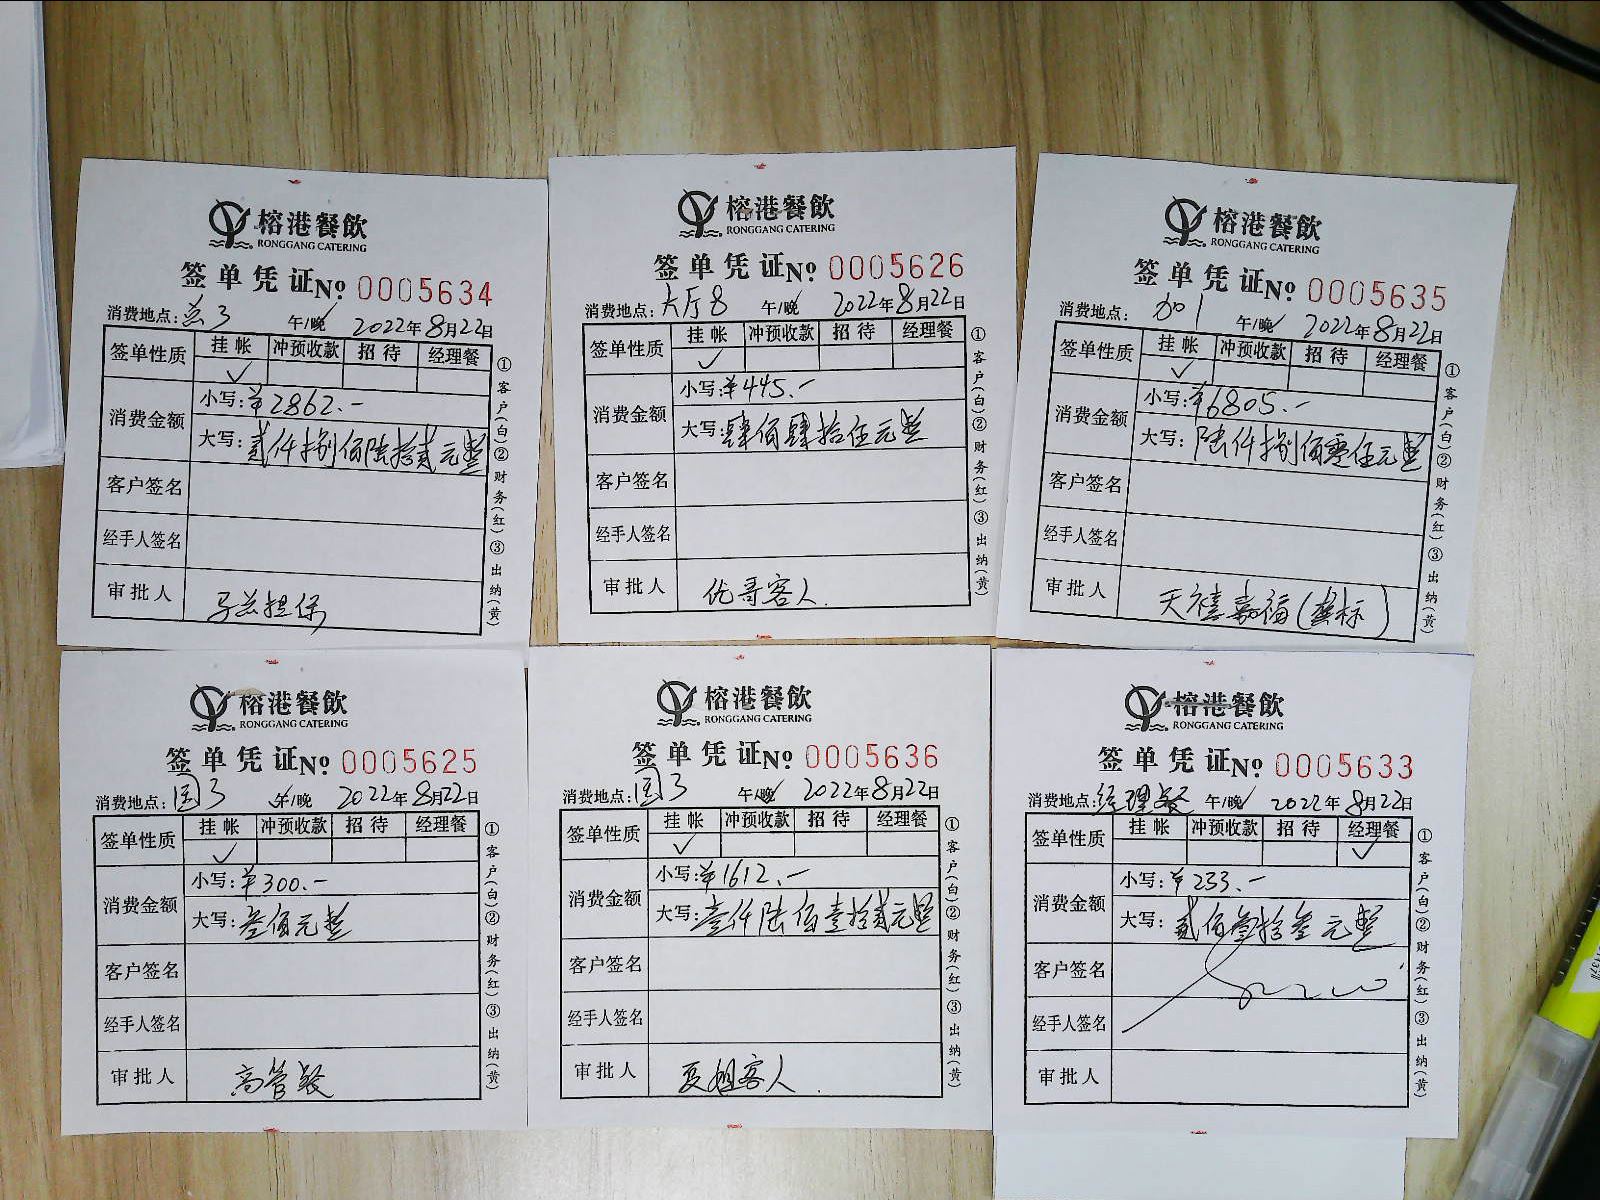 榕港餐飲
RONGGANG CATERING
签单凭证 № 0005634
消费地点: 3 午/晚 2022年8月22日
签单性质 挂帐 冲预收款 招待 经理餐
✓
消费金额 小写:¥2862.-
大写:贰仟捌佰陆拾贰元整
客户签名
经手人签名
审批人 担保
①客户(白)②财务(红)③出纳(黄)
榕港餐飲
RONGGANG CATERING
签单凭证 № 0005626
消费地点:大厅8 午/晚 2022年8月22日
签单性质 挂帐 冲预收款 招待 经理餐
✓
消费金额 小写:¥445.-
大写:肆佰肆拾伍元整
客户签名
经手人签名
审批人 优哥客人.
①客户(白)②财务(红)③出纳(黄)
榕港餐飲
RONGGANG CATERING
签单凭证 № 0005635
消费地点: 加1 午/晚 2022年8月22日
签单性质 挂帐 冲预收款 招待 经理餐
✓
消费金额 小写:¥6805.-
大写:陆仟捌佰零伍元整
客户签名
经手人签名
审批人 天禧嘉福(龚标)
①客户(白)②财务(红)③出纳(黄)
榕港餐飲
RONGGANG CATERING
签单凭证 № 0005625
消费地点:国3 午/晚 2022年8月22日
签单性质 挂帐 冲预收款 招待 经理餐
✓
消费金额 小写:¥300.-
大写:叁佰元整
客户签名
经手人签名
审批人 高管餐
①客户(白)②财务(红)③出纳(黄)
榕港餐飲
RONGGANG CATERING
签单凭证 № 0005636
消费地点:国3 午/晚 2022年8月22日
签单性质 挂帐 冲预收款 招待 经理餐
✓
消费金额 小写:¥1612.-
大写:壹仟陆佰壹拾贰元整
客户签名
经手人签名
审批人 夏姐客人.
①客户(白)②财务(红)③出纳(黄)
榕港餐飲
RONGGANG CATERING
签单凭证 № 0005633
消费地点:经理餐 午/晚 2022年8月22日
签单性质 挂帐 冲预收款 招待 经理餐
✓
消费金额 小写:¥233.-
大写:贰佰叁拾叁元整
客户签名
经手人签名
审批人
①客户(白)②财务(红)③出纳(黄)